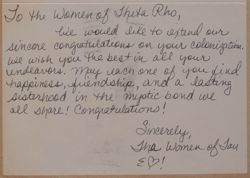 To the Women of Theta Rho,
We would like to extend our
sincere congratulations on your colonization.
We wish you the best in all your
endeavors. May each one of you find
happiness, friendship, and a lasting
sisterhood in the mystic bond we
all share! Congratulations!
Sincerely,
The Women of Tau
Σ♡!